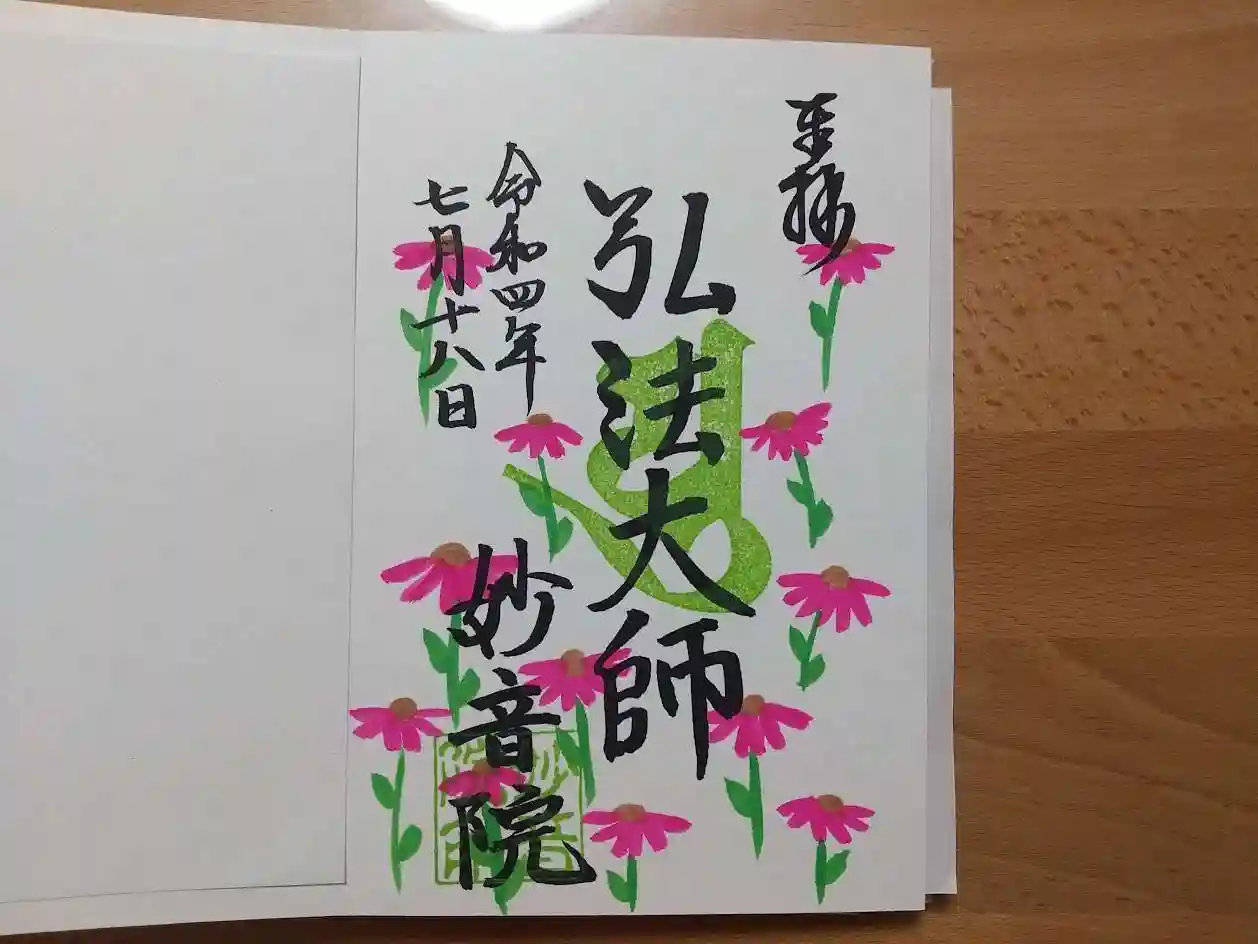 奉拝
弘法大師
令和四年
七月十八日
妙音院